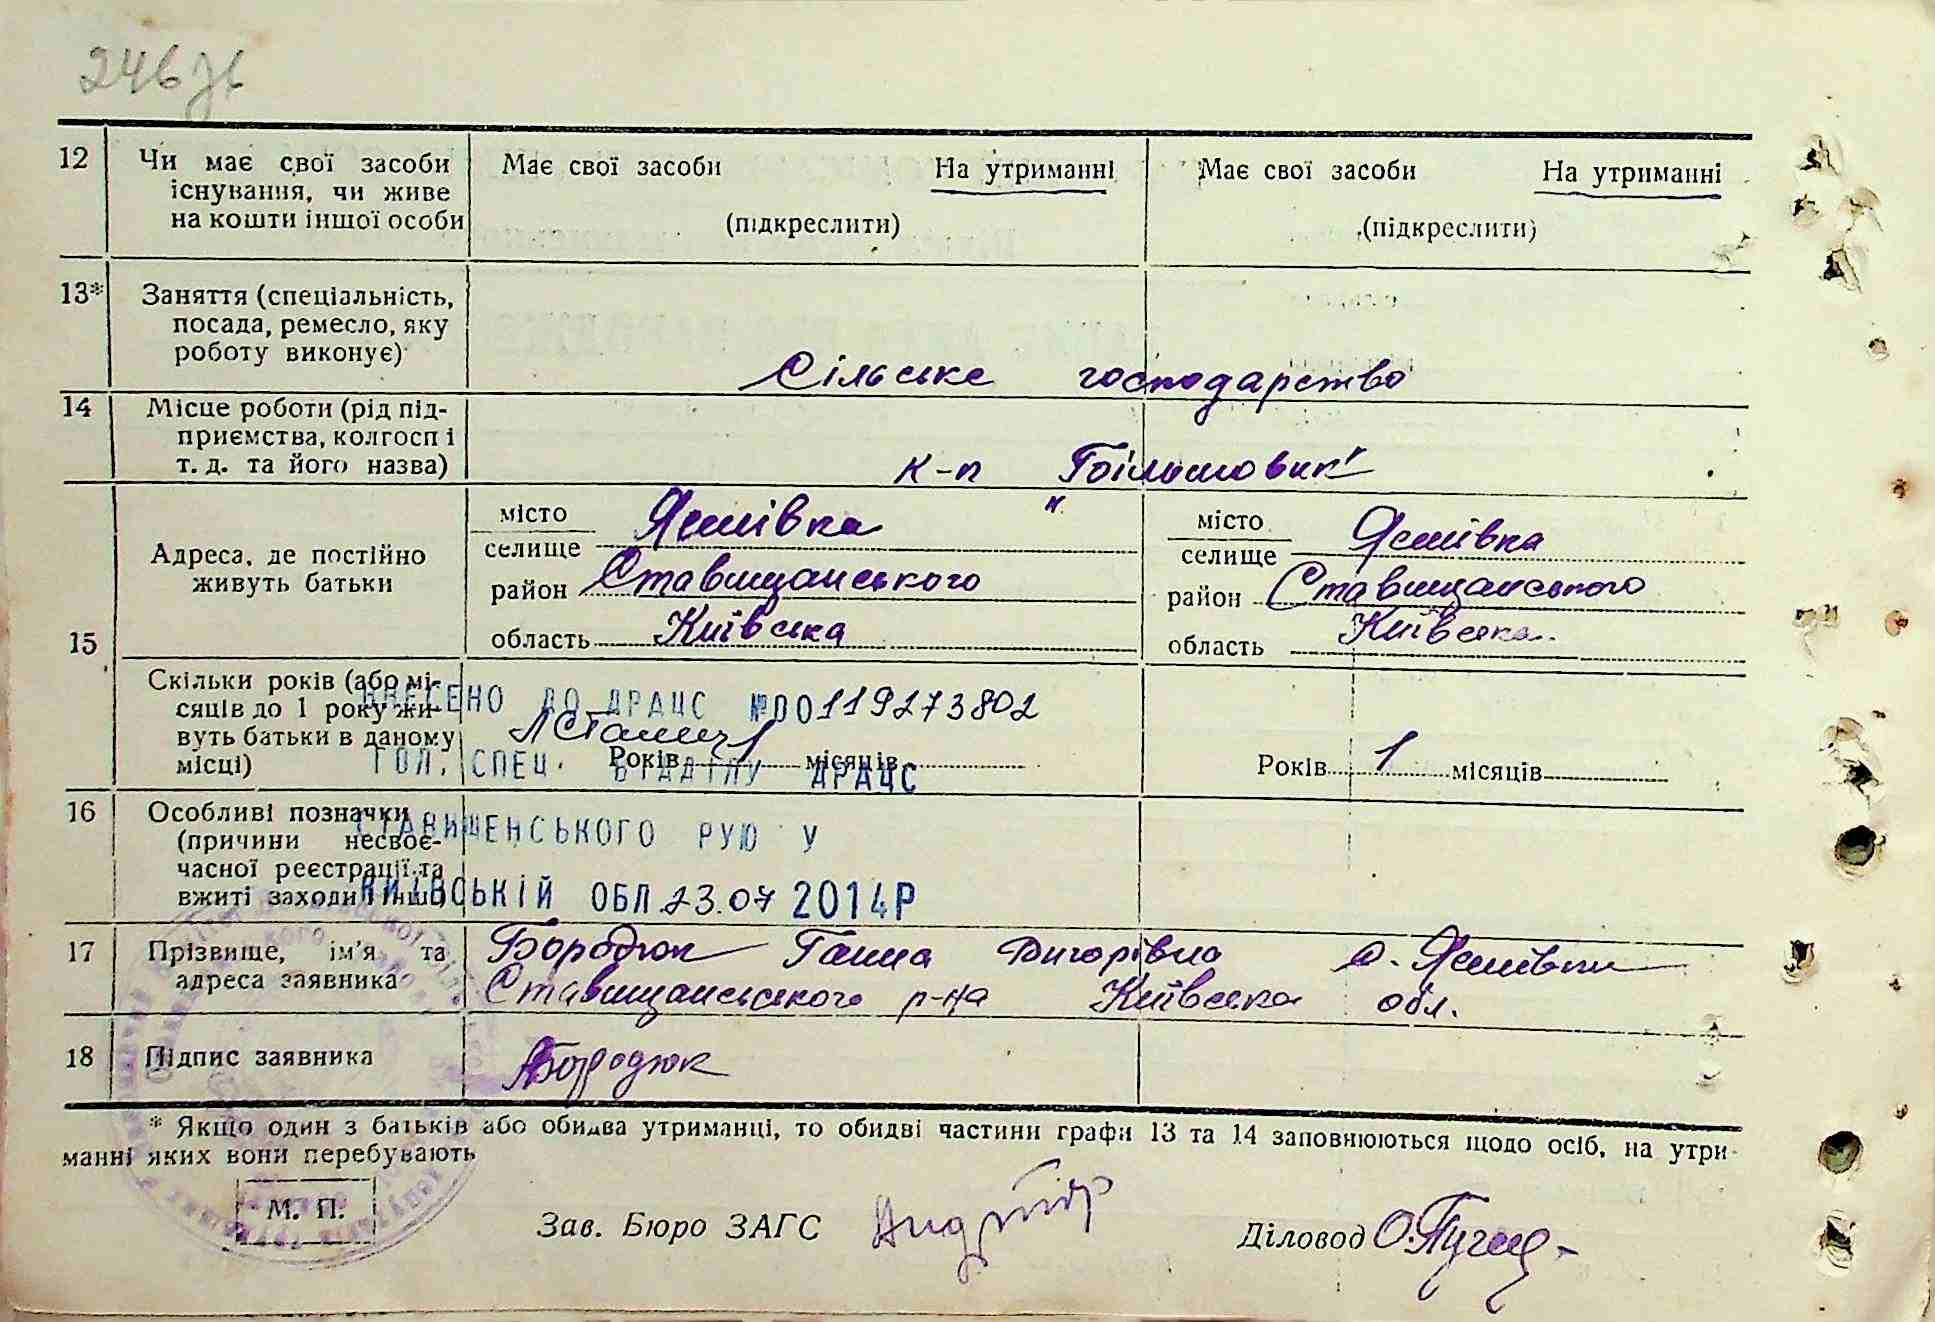 246 зв
12 Чи має свої засоби існування, чи живе на кошти іншої особи
Має свої засоби На утриманні
(підкреслити)
Має свої засоби На утриманні
(підкреслити)
13* Заняття (спеціальність,
посада, ремесло, яку
роботу виконує)
Сільське господарство
14 Місце роботи (рід під-
приємства, колгосп і
т. д. та його назва)
к-п "Більшовик"
15
Адреса, де постійно
живуть батьки
місто
селище Яснівка
район Ставищанського
область Київська
місто
селище Яснівка
район Ставищанського
область Київська
Скільки років (або мі-
сяців до 1 року жи-
вуть батьки в даному
місці)
Років 1 місяців
Років 1 місяців
ВНЕСЕНО ДО ДРАЦС №00119273802
ГОЛ. СПЕЦ. ВІДДІЛУ ДРАЦС
СТАВИЩЕНСЬКОГО РУЮ У
КИЇВСЬКІЙ ОБЛ 23.07 2014Р
16 Особливі позначки
(причини несвоє-
часної реєстрації та
вжиті заходи і інш.)
17 Прізвище, ім'я та
адреса заявника
Бородюк Ганна Григорівна с. Яснівки
Ставищанського р-на Київська обл.
18 Підпис заявника
Бородюк
* Якщо один з батьків або обидва утриманці, то обидві частини графи 13 та 14 заповнюються щодо осіб, на утри-
манні яких вони перебувають
М. П.
Зав. Бюро ЗАГС
Діловод